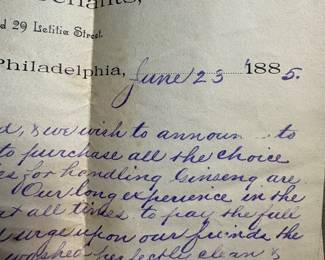 erchants,
d 29 Letitia Street.
Philadelphia, June 23 1885.
d, & we wish to announ to
to purchase all the choice
es for handling Ginseng are
Our long experience in the
at all times to pay the full
urge upon our friends the
washed perfectly clean &